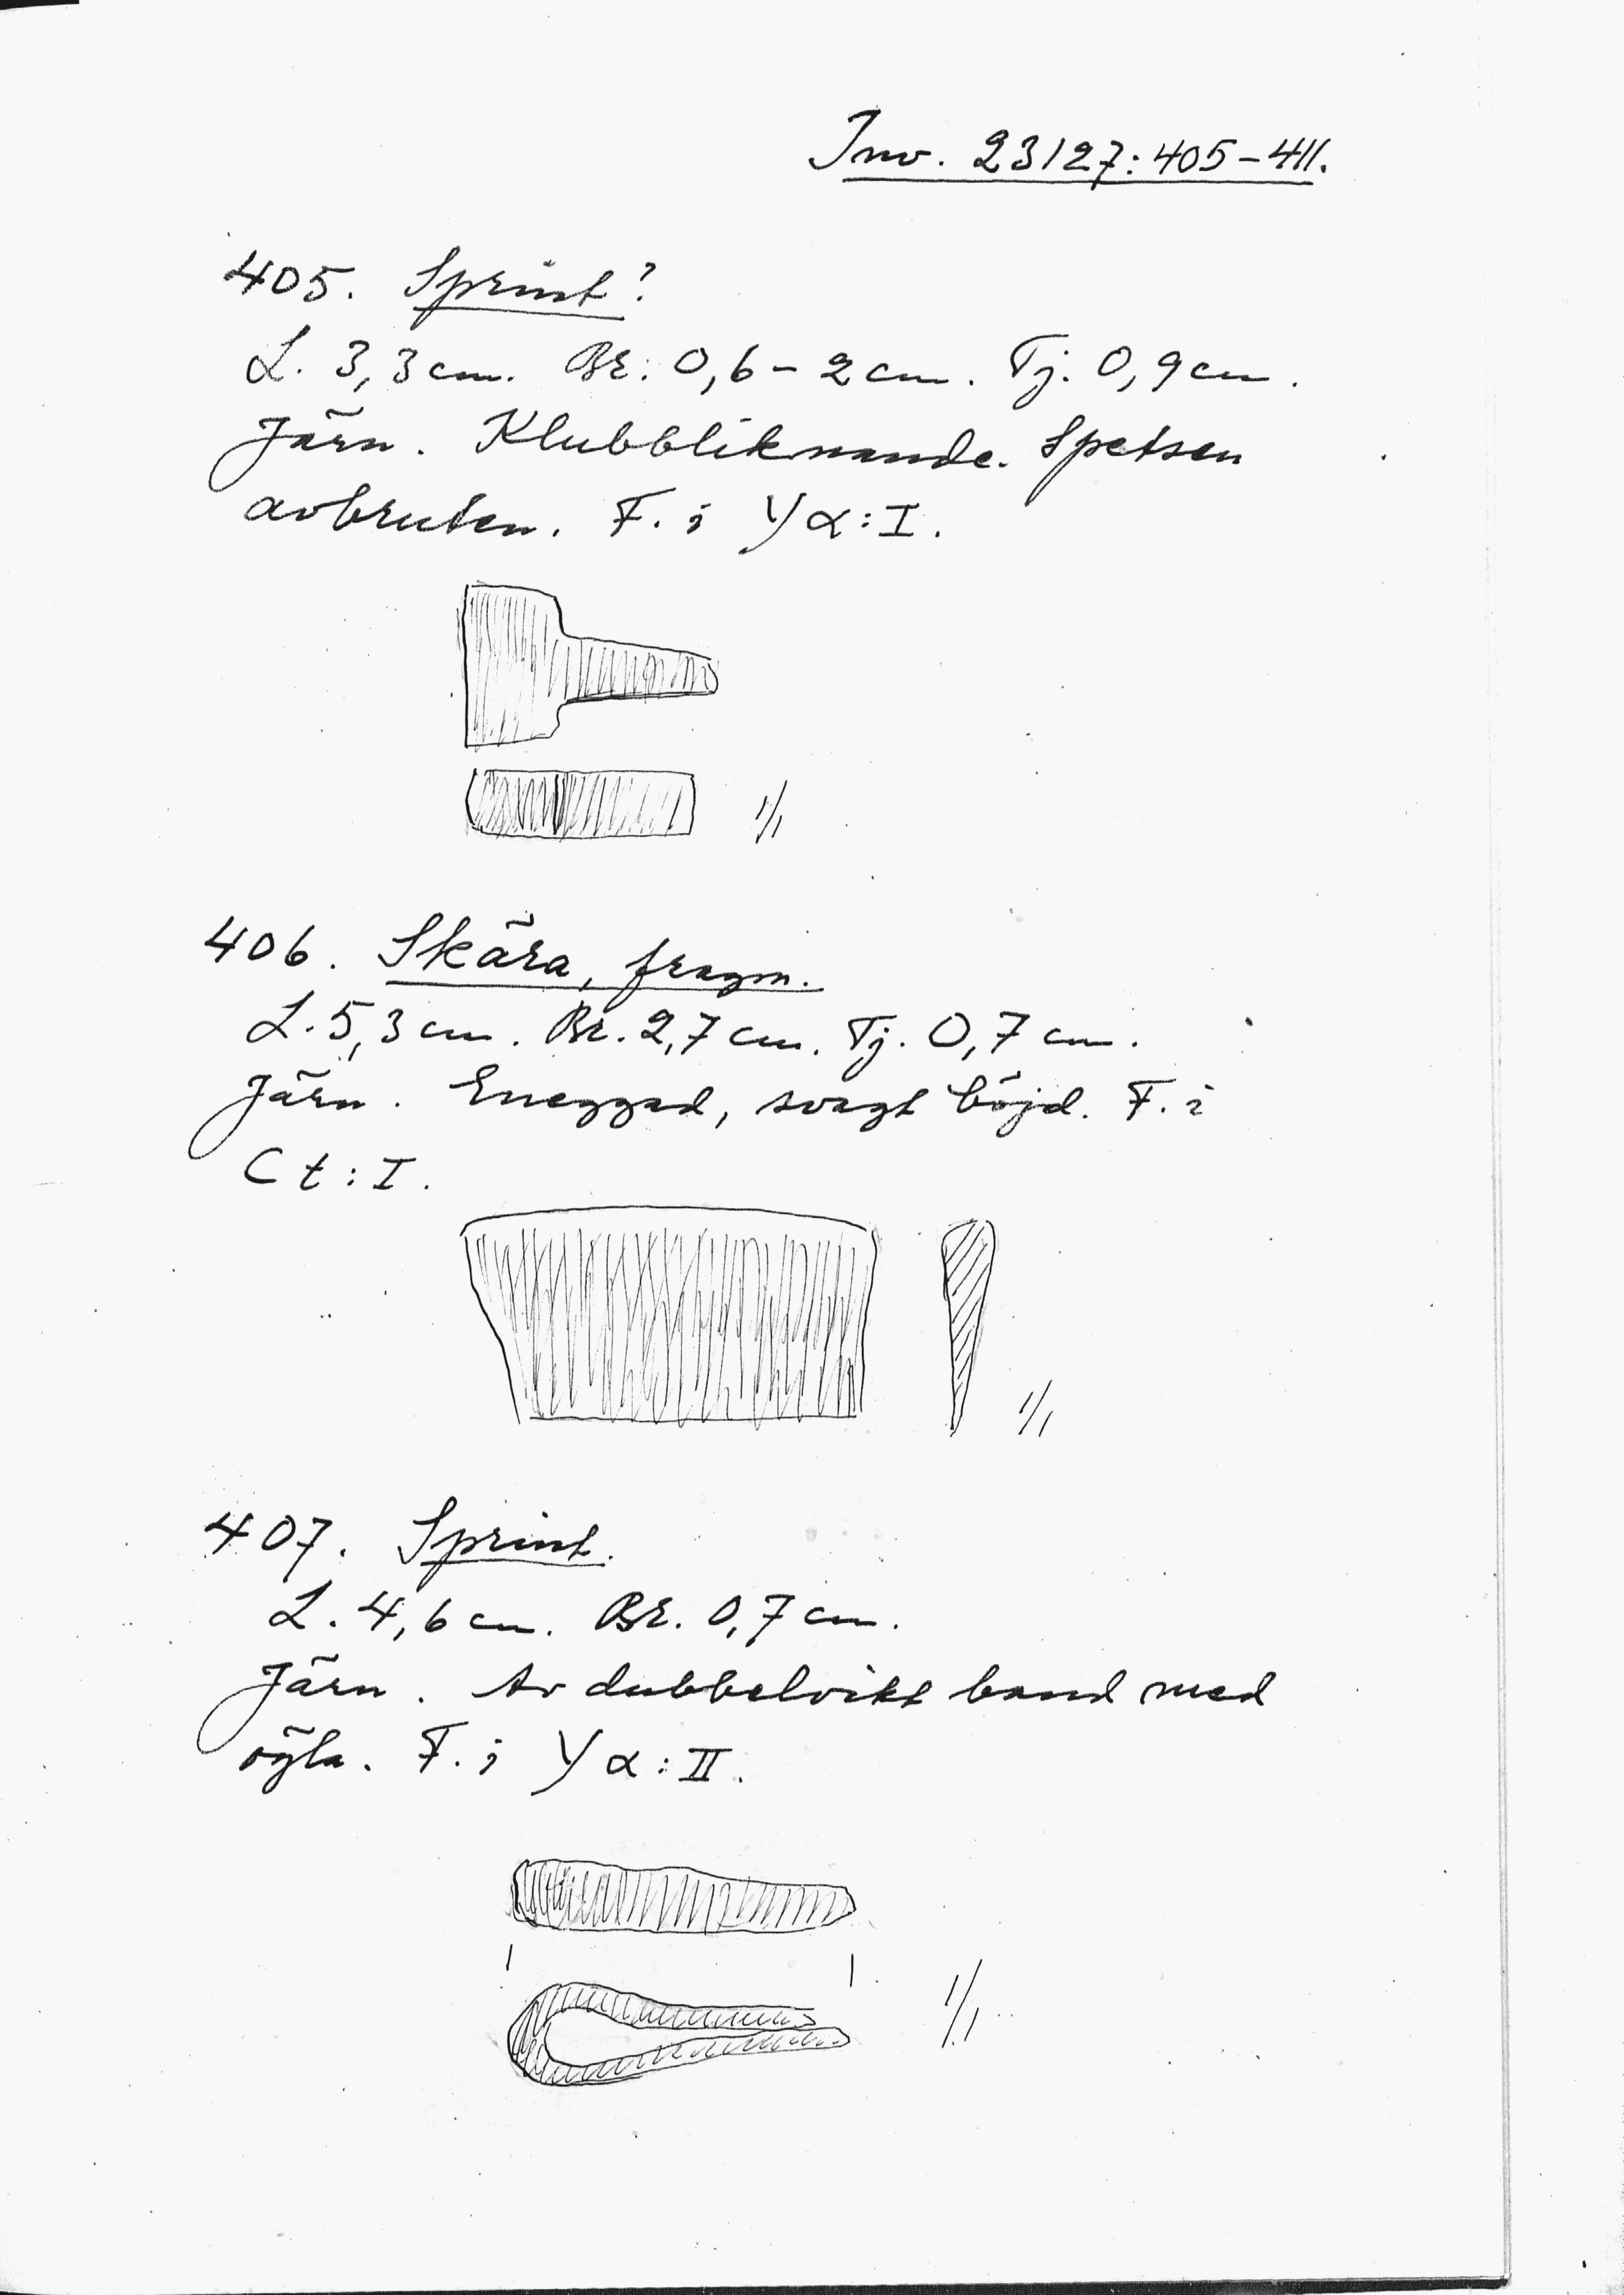 Inv. 23127:405-411.
405. Sprint?
L. 3,3 cm. Br: 0,6-2 cm. Tj. 0,9 cm.
Järn. Klubbliknande. Spetsen
avbruten. F. i Yα:I.
1/1
406. Skära, fragm.
L. 5,3 cm. Br. 2,7 cm. Tj. 0,7 cm.
Järn. Eneggad, svagt böjd. F. i
Ct:I.
1/1
407. Sprint.
L. 4,6 cm. Br. 0,7 cm.
Järn. Av dubbelvikt band med
ögla. F. i Yα:II.
1/1